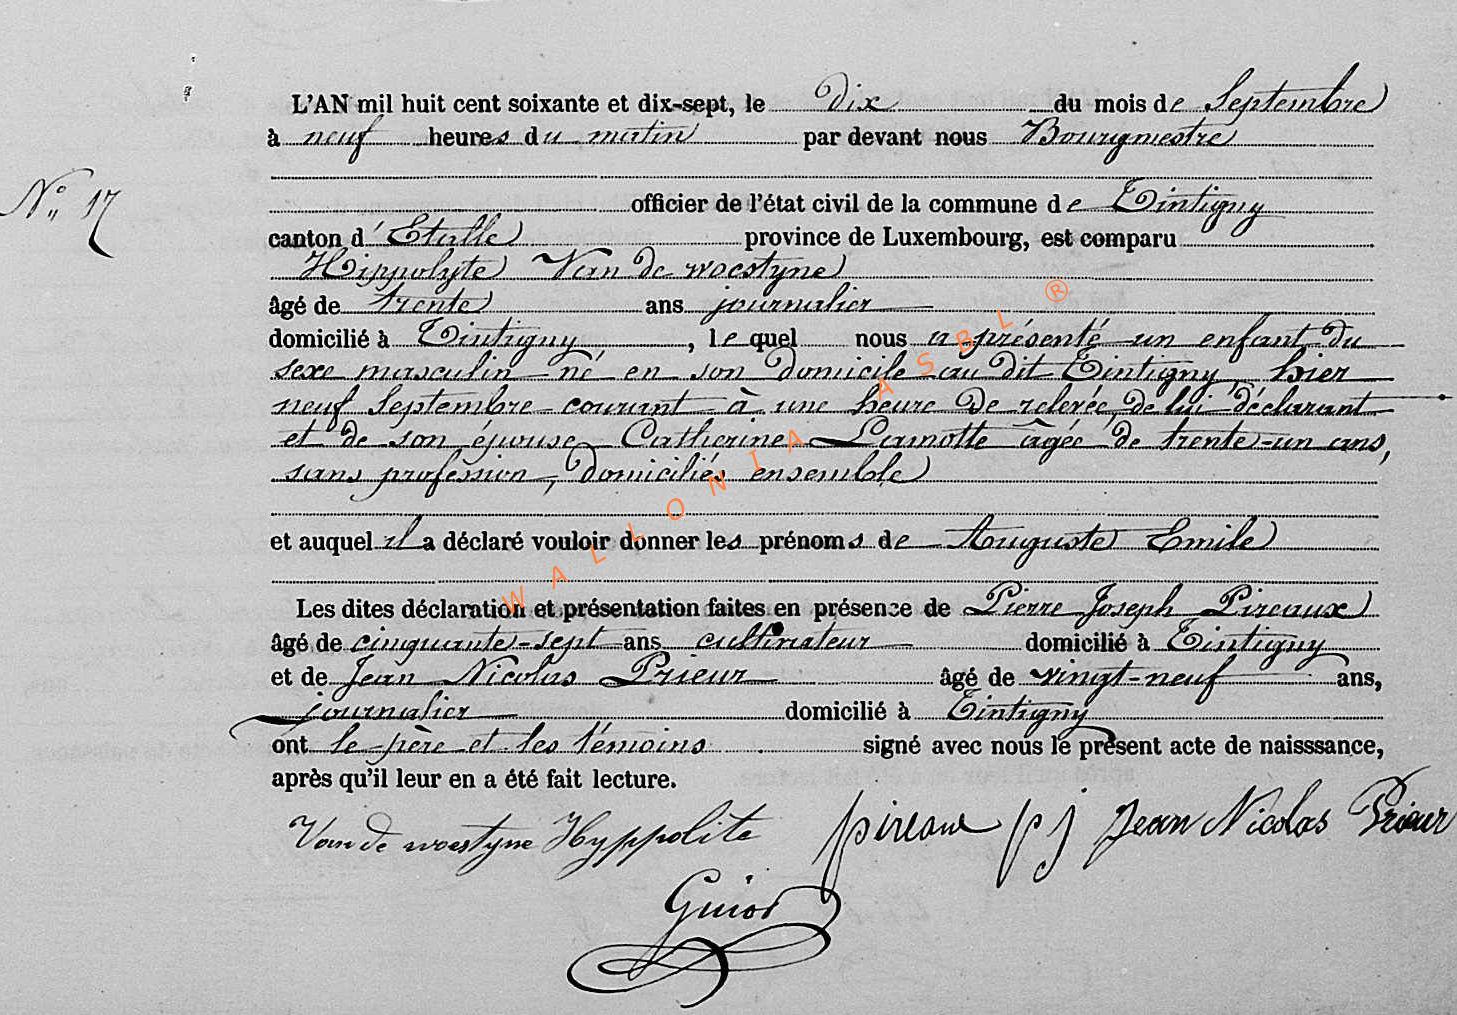 L'AN mil huit cent soixante et dix-sept, le dix du mois de Septembre
à neuf heures du matin par devant nous Bourgmestre
N° 17
officier de l'état civil de la commune de Tintigny
canton d'Etalle province de Luxembourg, est comparu
Hippolyte Van de woestyne
âgé de trente ans journalier
domicilié à Tintigny, lequel nous a présenté un enfant du
sexe masculin né en son domicile au dit Tintigny, hier
neuf Septembre courant à une heure de relevée, de lui déclarant
et de son épouse Catherine Lamotte âgée de trente-un ans,
sans profession, domiciliés ensemble
et auquel il a déclaré vouloir donner les prénoms de Auguste Emile
Les dites déclaration et présentation faites en présence de Pierre Joseph Pireaux
âgé de cinquante-sept ans cultivateur domicilié à Tintigny
et de Jean Nicolas Prieur âgé de vingt-neuf ans,
journalier domicilié à Tintigny
ont le père et les témoins signé avec nous le présent acte de naisssance,
après qu'il leur en a été fait lecture.
Van de woestyne Hyppolite pireaux pj Jean Nicolas Prieur
Guiot
WALLONIA ASBL ®